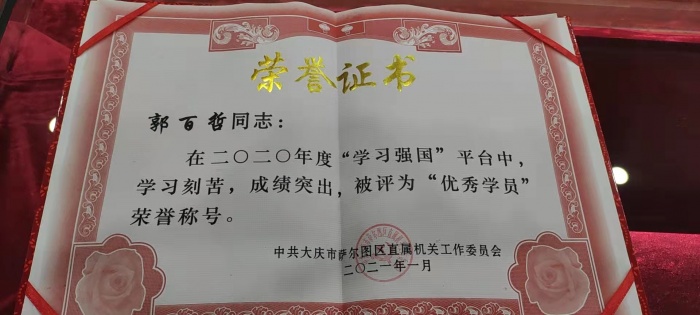 荣誉证书
郭百哲同志：
在二〇二〇年度“学习强国”平台中，
学习刻苦，成绩突出，被评为“优秀学员”
荣誉称号。
中共大庆市萨尔图区直属机关工作委员会
二〇二一年一月